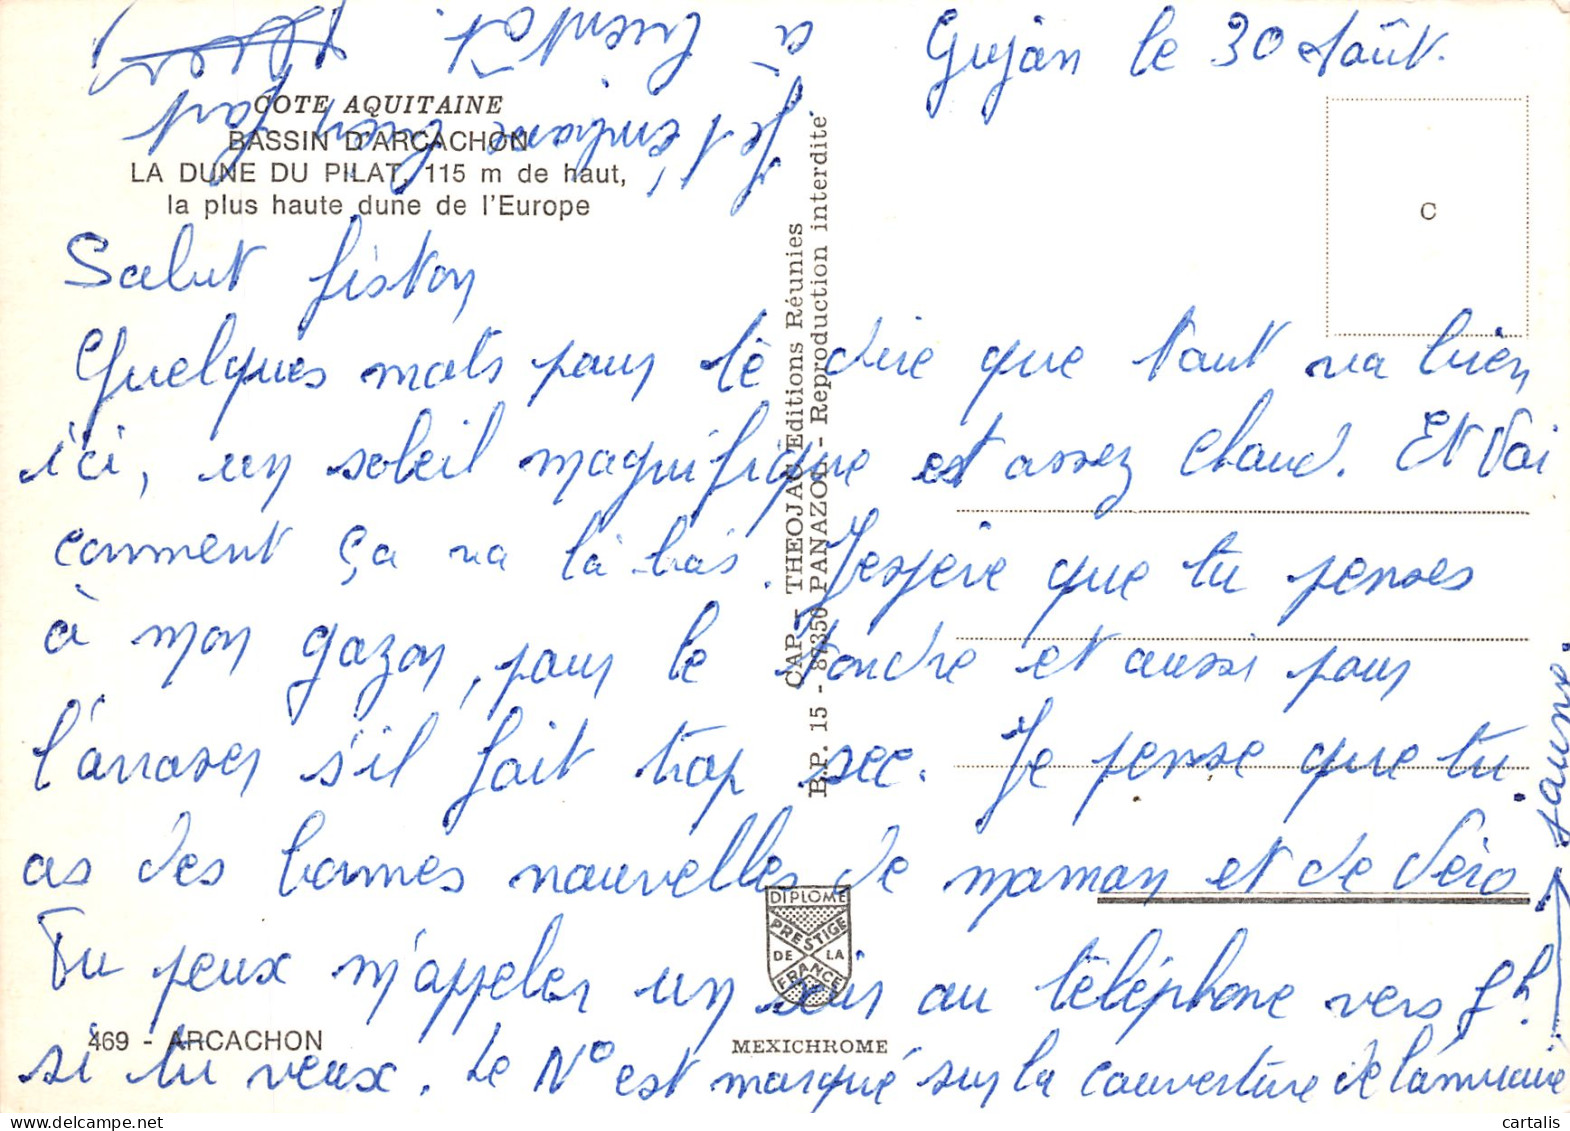 Gujan le 30 Août.
COTE AQUITAINE
BASSIN D'ARCACHON
LA DUNE DU PILAT, 115 m de haut,
la plus haute dune de l'Europe
C
Salut fiston
Quelques mots pour te dire que tout va bien
ici, un soleil magnifique est assez chaud. Et toi
comment ça va là bas. J'espère que tu penses
à mon gazon, pour le tondre et aussi pour
l'arroser s'il fait trop sec. Je pense que tu
as des bonnes nouvelles de maman et de Véro
Tu peux m'appeler un soir au téléphone vers 9h.
si tu veux. Le N° est marqué sur la couverture de l'annuaire
jaune.
Je t'embrasse bien fort
à bientôt.
CAP - THEOJAC Editions Réunies
B.P. 15 - 87350 PANAZOL - Reproduction interdite
DIPLOME
PRESTIGE
DE LA
FRANCE
469 - ARCACHON
MEXICHROME
cartalis